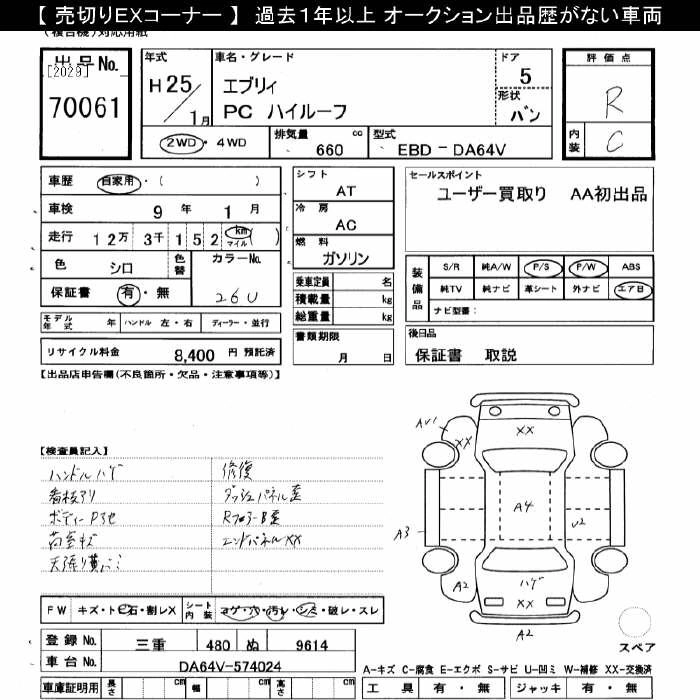 【 売切りEXコーナー 】 過去1年以上 オークション出品歴がない車両
出品No.
[2029]
70061
年式
H 25/1月
車名・グレード
エブリィ
PC ハイルーフ
ドア
5
形状
バン
評価点
R
内装
C
2WD・4WD
排気量 cc
660
型式
EBD-DA64V
車歴 自家用・( )
車検 9 年 1 月
走行 12万 3千 1 5 2 km マイル ( )
色 シロ 色替 カラーNo.
26U
保証書 有・無
モデル年式 年 ハンドル 左・右 ディーラー・並行
リサイクル料金 8,400 円 預託済
シフト
AT
冷房
AC
燃料
ガソリン
乗車定員 名
積載量 kg
総重量 kg
書類期限
月 日
セールスポイント
ユーザー買取り AA初出品
装備品
S/R 純A/W P/S P/W ABS
純TV 純ナビ 革シート 外ナビ エアB
ナビ型番:
後日品
保証書 取説
【出品店申告欄(不良箇所・欠品・注意事項等)】
【検査員記入】
ハンドルハゲ
看板アリ
ボディーP3セ
荷室キズ
修復
ダッシュパネル歪
エンドパネルXX
FW キズ・トビ石・割レX シート内装 コゲ・穴・汚レ・シミ・破レ・スレ
登録No. 三重 480 ぬ 9614
車台No. DA64V-574024
車庫証明用 長さ cm 幅 cm 高さ cm
XX
XX
A4
A3
U2
A2
ハゲ
XX
A2
スペア
A-キズ C-腐食 E-エクボ S-サビ U-凹ミ W-補修 XX-交換済
工具 有・無 ジャッキ 有・無